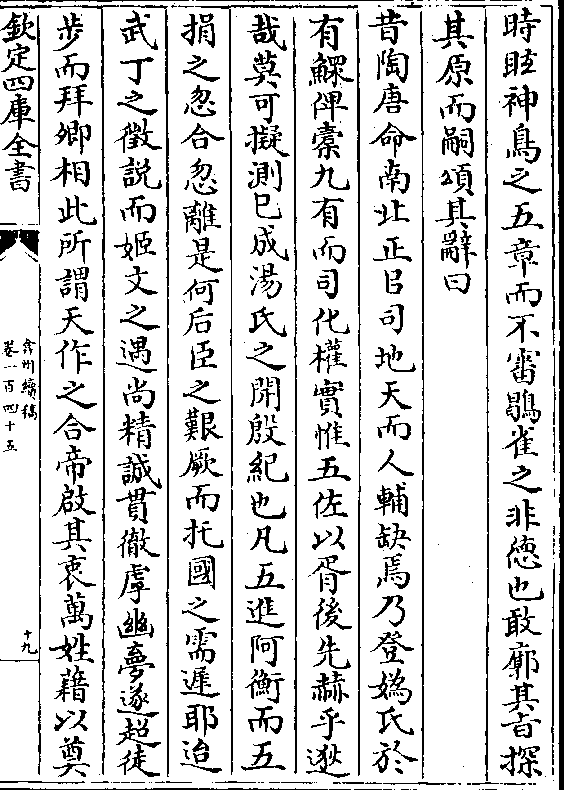 時眩神鳥之五章而不審鷃雀之非徳也敢廓其旨探
其原而嗣頌其辭曰
昔陶唐命南北正臣司地天而人輔缺焉乃登媯氏於
有鰥俾櫜九有而司化權實惟五佐以胥後先赫乎逖
哉莫可擬測已成湯氏之開殷紀也凡五進阿衡而五
捐之忽合忽離是何后臣之艱厥而托國之需遲耶迨
武丁之徵説而姬文之遇尚精誠貫徹虖幽夢遂超徒
步而拜卿相此所謂天作之合帝啟其衷萬姓藉以奠
欽定四庫全書
弇州續稿
卷一百四十五
十九